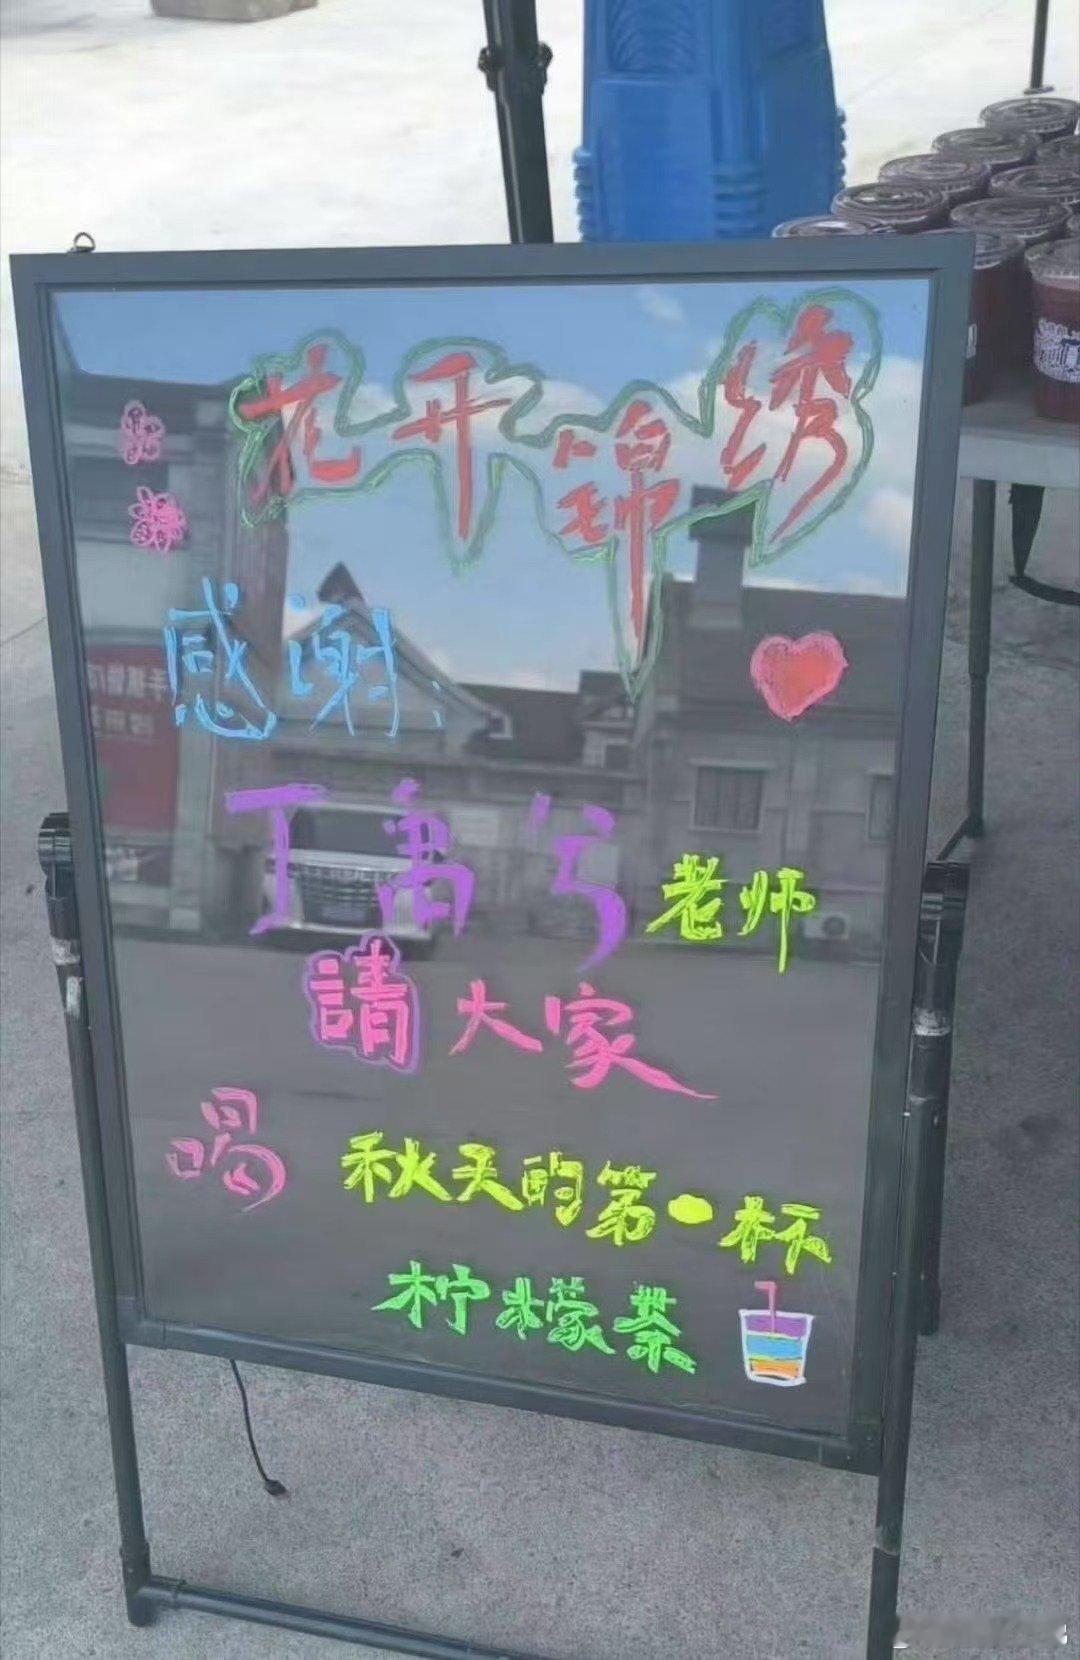 花开锦绣
感谢:
丁禹兮老师
請大家
喝 秋天的第一杯
柠檬茶